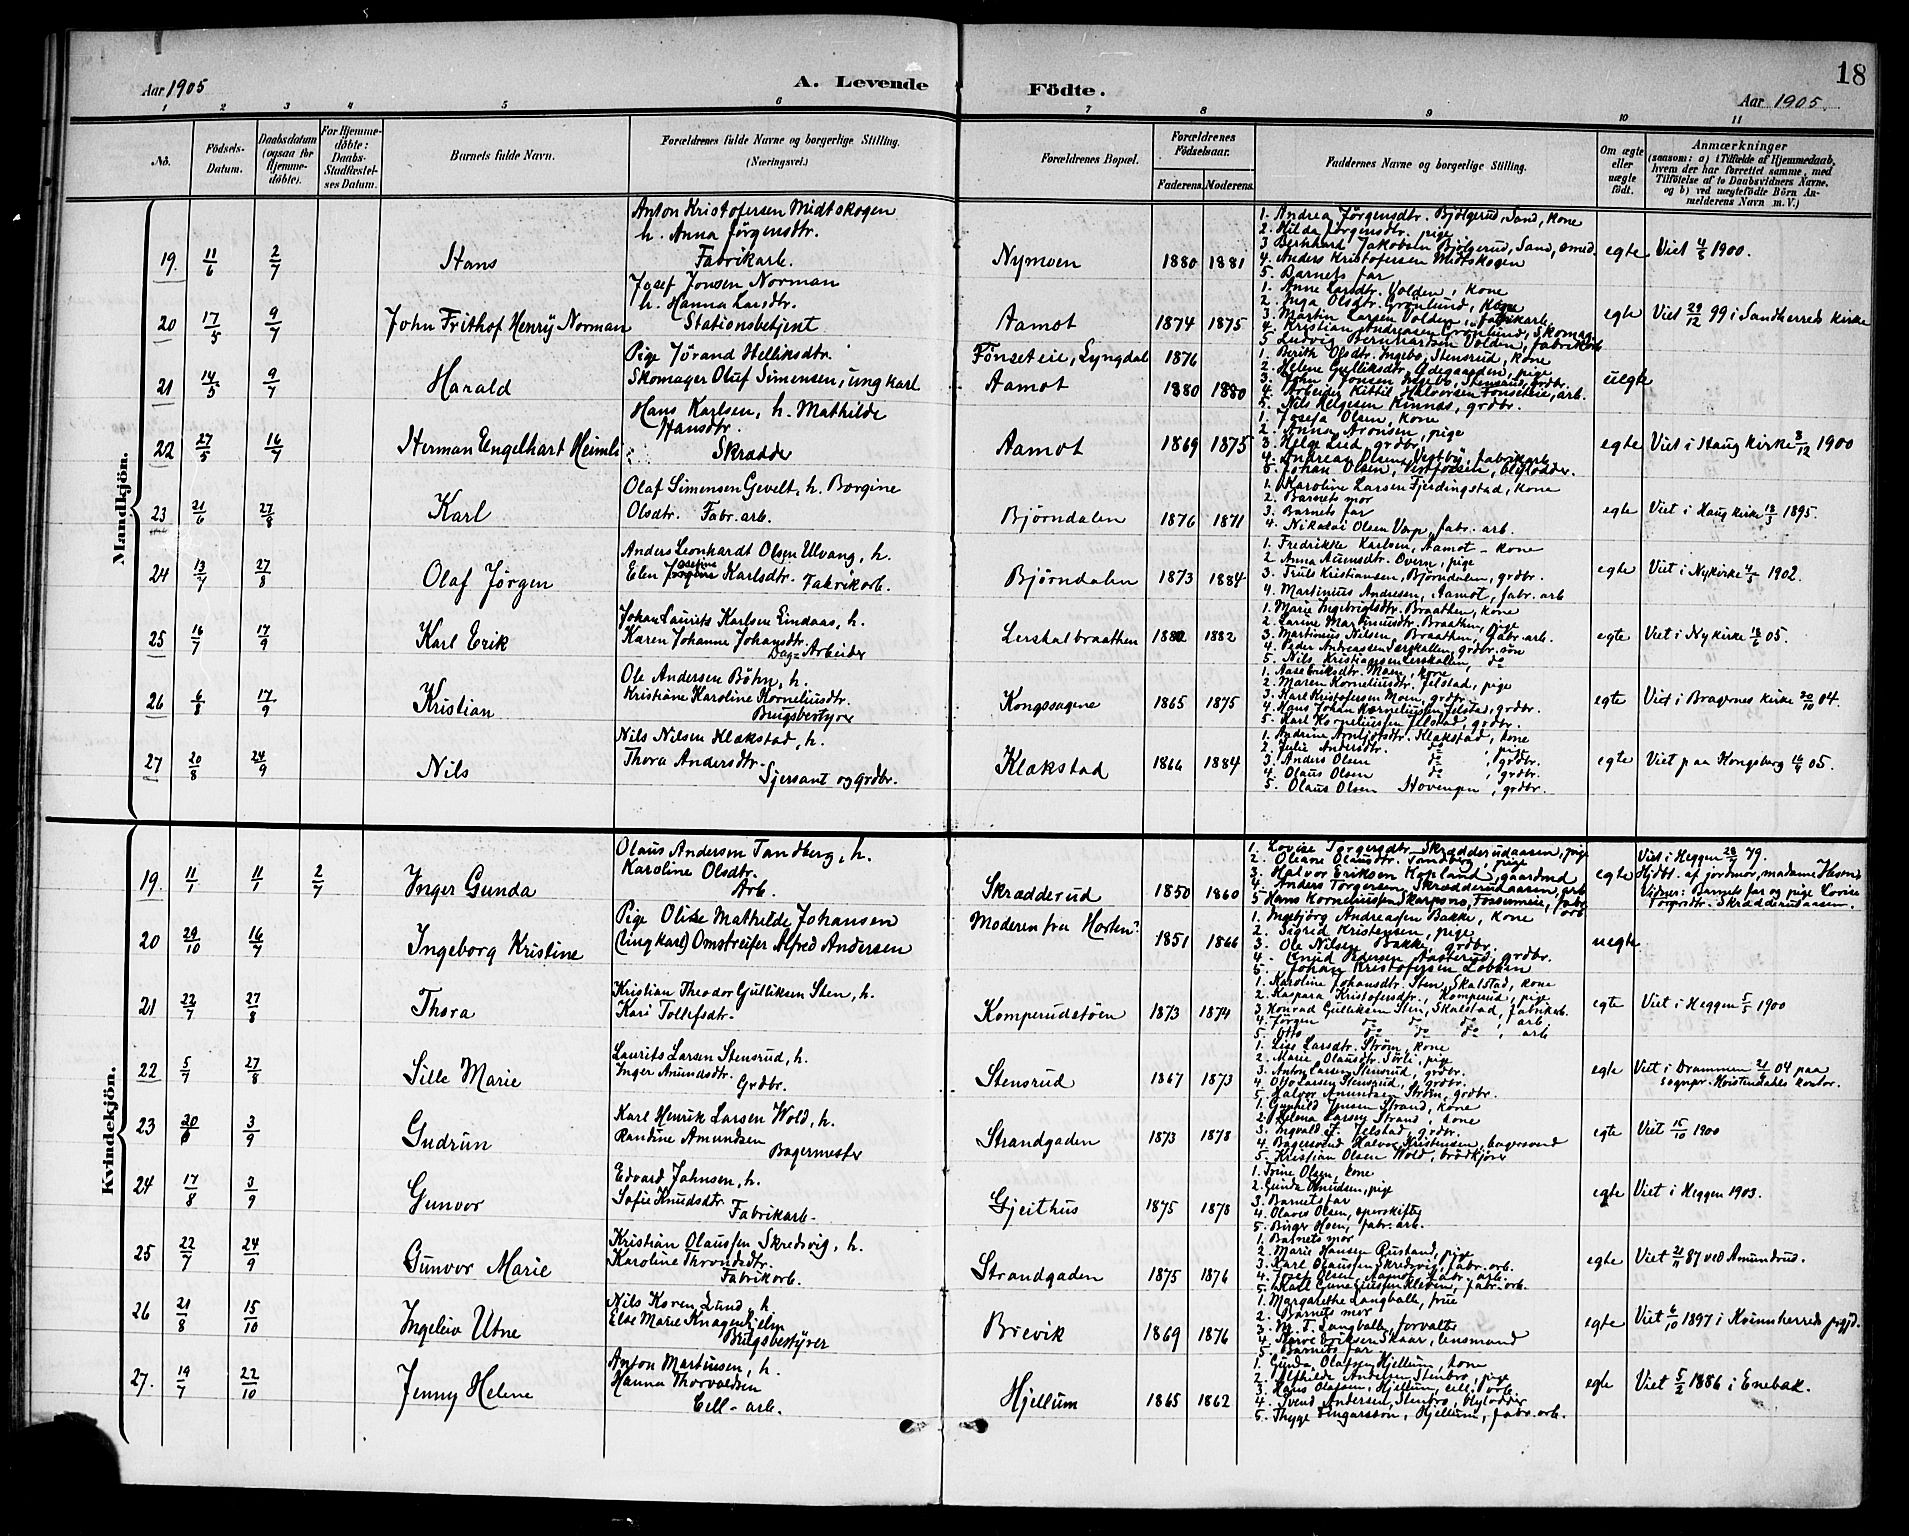 18
Aar 1905
A. Levende Födte.
Aar 1905.
1 2 3 4 5 6 7 8 9 10 11
No.
Födsels-Datum.
Daabsdatum (ogsaa for Hjemme-döbte).
For Hjemme-döbte: Daabs-Stadfæstel-ses Datum.
Barnets fulde Navn.
Forældrenes fulde Navne og borgerlige Stilling.
(Næringsvei.)
Forældrenes Bopæl.
Forældrenes Födselsaar.
Faderens. Moderens.
Faddernes Navne og borgerlige Stilling.
Om ægte eller uægte födt.
Anmærkninger
(saasom: a) i Tilfælde af Hjemmedaab,
hvem der har forrettet samme, med
Tilföielse af to Daabsvidners Navne,
og b) ved uægtefödte Börn An-
melderens Navn m. V.)
Mandkjön.
19. 11/6 2/7 Hans
Anton Kristofersen Midtskogen
h. Anna Jørgensdtr.
Fabrikarb.
Nymoen 1880 1881
1. Andrea Jørgensdtr. Bjölgerud, Sand, kone
2. Hilda Jørgensdtr. pige
3 Bernhard Jakobsen Bjölgerud, Sand, smed.
4. Anders Kristofersen Midtskogen
5. Barnets far
egte Viet 4/5 1900.
20 17/5 9/7 John Frithof Henry Norman
Josef Jonsen Norman
h. Hanna Larsdtr.
Stationsbetjent
Aamot 1874 1875
1. Anne Larsdtr. Volden, kone
2. Inga Olsdtr. Grönlund, kone
3. Martin Larsen Volden, fabrikarb.
4. Kristian Andreasen Grönlund, Skomag.
5 Ludvig Bernhardsen Volden, fabrikarb
egte Viet 29/12 99 i Sandherreds kirke
21 14/5 9/7 Harald
Pige Jörand Helliksdtr.
Skomager Oluf Simensen, ungkarl
Fönseteie, Lyngdal 1876
Aamot 1880 1880
1. Berith Olsdtr. Ingebo, Stensrud, kone
2. Helene Gulliksdtr. Ödegaarden, pige
3. John Jonsen Ingebo, Stensrud, grdbr.
4. Arbeider Kittil Halvorsen Fönseteie, arb.
5. Nils Helgesen Kinnas, grdbr.
uegte
22 27/5 16/7 Herman Engelhart Heimli
Hans Karlsen, h. Mathilde
Hansdtr.
Skrædder
Aamot 1869 1875
1. Josefa Olsen, kone
2. Anna Aronsen, pige
3. Helge Lied, grdbr.
4. Andreas Olsen Vestby, fabrikarb.
5. Johan Olsen, Vestfossen, blylodder.
egte Viet i Haug kirke 8/12 1900
23 21/6 27/8 Karl
Olaf Simensen Gevelt, h. Borgine
Olsdtr. Fabr. arb.
Bjørndalen 1876 1871
1. Karoline Larsen Fjerdingstad, kone
2. Barnets mor
3. Barnets far
4. Nikolai Olsen Vorp, fabr. arb.
egte Viet i Haug kirke 18/3 1895.
24 13/7 27/8 Olaf Jørgen
Anders Leonhardt Olsen Ulvang, h.
Elen Josefine Karlsdtr. Fabrikarb.
Bjørndalen 1873 1884
1. Fredrikke Karlsen, Aamot - kone
2 Anna Auensdtr. Overn, pige
3. Truls Kristiansen, Björndalen, grdbr.
4. Martinius Andresen, Aamot, fabr. arb
egte Viet i Nykirke 4/5 1902.
25 16/7 17/9 Karl Erik
Johan Laurits Karlsen Lindaas, h.
Karen Johanne Johansdtr.
Dag-Arbeider
Lerskalbraatthen 1882 1882
1. Marie Ingebrigtsdtr. Braathen, kone
2. Larine Martinusdtr. Braathen, pige
3. Martinius Nilsen, Braathen, fabr. arb.
4. Peder Andreassen Lerskallen, grdbr. sön
5. Nils Kristiansen Lerskallen, do
egte Viet i Nykirke 18/6 05.
26 6/8 17/9 Kristian
Ole Andersen Böhn, h.
Kristiane Karoline Korneliusdtr.
Brugsbestyrer
Kongssagene 1865 1875
1. Aase Eriksdtr. Moen, kone
2. Maren Korneliusdtr. Jelstad, pige
3. Karl Kristofersen Moen, grdbr.
4. Hans Johan Korneliussen Jelstad, grdbr.
5. Karl Korneliussen Jelstad, grdbr.
egte Viet i Bragernes kirke 20/10 04.
27 20/8 24/9 Nils
Nils Nilsen Klækstad, h.
Thora Andersdtr.
Sjersant og grdbr.
Klækstad 1866 1884
1. Andrine Arntsdtr. Klækstad, kone
2. Julie Andersdtr. do, pige
3. Anders Olsen do, grdbr.
4. Olaus Olsen do, grdbr.
5. Olaus Olsen Hovengen, grdbr.
egte Viet paa Kongsberg 16/4 05.
Kvindekjön.
19. 11/1 11/1 2/7 Inger Gunda
Olaus Andersen Tandberg, h.
Karoline Olsdtr.
Arb.
Skrædderud 1850 1860
1. Lovise Torgersdtr. Skrædderudaasen, pige
2. Oleane Olausdtr. Tandberg, pige
3. Halvor Eriksen Hopland, gaardmd
4. Anders Torgersen Skrædderudaasen, arb
5 Hans Korneliussen Skarpsno, Fossumeie, fabr. arb
egte Viet i Heggen 28/7 79.
Hjdbt. af jordmor, madame Hestnes
Vidner: Barnets far og pige Lovise
Torgersdtr. Skrædderudaasen.
20 29/10 16/7 Ingeborg Kristine
Pige Olise Mathilde Johansen
(ungkarl) Omstreifer Alfred Andersen
Moderen fra Horten? 1851 1866
1. Ingebjörg Andreassen Bakke, kone
2. Sigrid Kristensen, pige
3. Ole Nilsen Bakke, grdbr.
4. Knud Pedersen Aasterud, grdbr.
5. Johan Kristofersen Lobben
uegte
21 22/7 27/8 Thora
Kristian Theodor Gulliksen Sten, h.
Kari Tollefsdtr.
Komperudstöen 1873 1874
1. Karoline Johansdtr. Sten, Skalstad, kone
2. Kaspara Kristofersdtr., Komperud, pige
3. Konrad Gulliksen Sten, Skalstad, fabrikarb.
4. Jörgen do do do, arb
5. Otto do do do, arb
egte Viet i Heggen 5/5 1900
22 5/7 27/8 Sille Marie
Laurits Larsen Stensrud, h.
Inger Amundsdtr.
Grdbr.
Stensrud 1867 1873
1. Lise Larsdtr. Ström, kone
2. Marie Olausdtr. Sörli, pige
3. Anton Larsen Stensrud, grdbr.
4. Otto Larsen Stensrud, grdbr.
5. Halvor Amundsen Ström, grdbr.
egte Viet i Drammen 21/6 04 paa
sognpr. Kristendahls kontor.
23 20/6 3/9 Gudrun
Karl Henrik Larsen Wold, h.
Randine Amundsen
Bagermester
Strandgaden 1873 1878
1. Gunhild Jensen Strand, kone
2. Helena Larsen Strand, kone
3. Ingvald J. Jelstad, grdbr.
4. Bagersvend Halvor Kristensen, bagersvend
5. Kristian Olsen Wold, brödkjörer
egte Viet 15/10 1900
24 17/8 3/9 Gunvor
Edvard Johnsen, h.
Sofie Knudsdtr.
Fabrikarb.
Gjeithus 1875 1878
1. Trine Olsen, kone
2. Gunda Knudsen, pige
3. Barnets far
4. Olaves Olsen, sporskifter
5. Birger Moen, fabr. arb.
egte Viet i Heggen 1903.
25 22/7 24/9 Gunvor Marie
Kristian Olaussen Skredsvig, h.
Karoline Throndsdtr.
Fabrikarb.
Strandgaden 1875 1876
1. Barnets mor
2. Marie Hansen Rustand, pige
3. Karl Olaussen Skredsvig, fabr. arb.
4. Josef Olsen, Aamot, fabr. arb.
5. Karl Gunerius­sen Kleven, fabr. arb.
egte Viet 21/11 87 ved Amundrud.
26 21/8 15/10 Ingeleiv Utne
Nils Koren Lund, h.
Else Marie Knagenhjelm
Brugsbestyrer
Brevik 1869 1876
1. Margarethe Langballe, frue
2. Barnets mor
3. M. T. Langballe, forvalter
4. Torve Eriksen Skaar, lensmand
5. Barnets far
egte Viet 6/10 1897 i Kvinnherreds prgjd.
27. 19/7 22/10 Jenny Helene
Anton Martinsen, h.
Hanna Thorvaldsen
Cell- arb.
Hjellum 1865 1862
1. Gunda Olafsen Hjellum, kone
2. Alfhilde Andersen Stenbro, pige
3. Hans Olafsen, Hjellum, cell. arb.
4. Svend Andersen, Stenbro, blylodder
5. Thyge Tingarsson, Hjellum, fabr. arb.
egte Viet 5/2 1886 i Enebak.